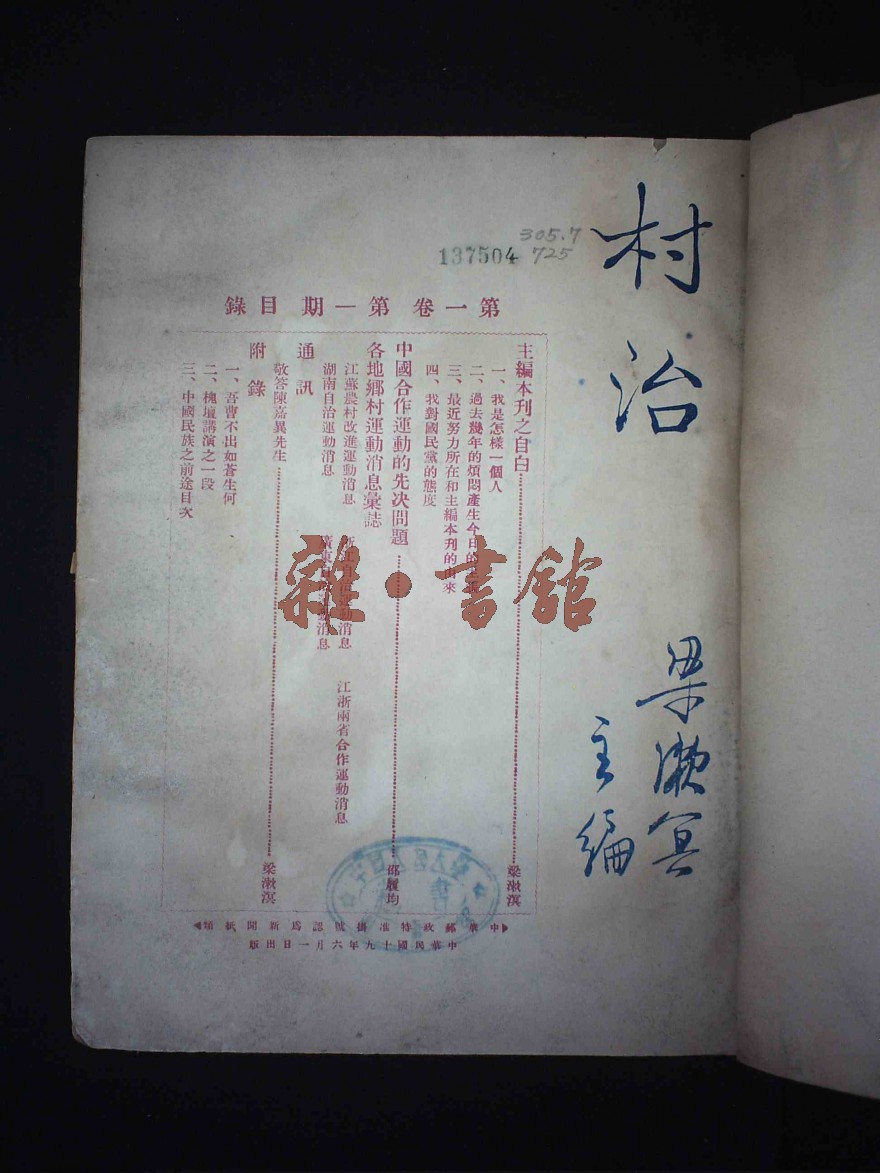 村治
梁漱冥
主編
305.7
725
137504
第一卷第一期目錄
主編本刊之自白 梁漱溟
一、我是怎樣一個人
二、過去幾年的煩悶產生今日的
三、最近努力所在和主編本刊的由來
四、我對國民黨的態度
中國合作運動的先决問題 邵履均
各地鄉村運動消息彙誌
江蘇農村改進運動消息 江浙兩省合作運動消息
湖南自治運動消息
通訊
敬答陳嘉異先生 梁漱溟
附錄
一、吾曹不出如蒼生何
二、槐壇講演之一段
三、中國民族之前途目次
中華郵政特准掛號認爲新聞紙類
中華民國十九年六月一日出版
雜·書館